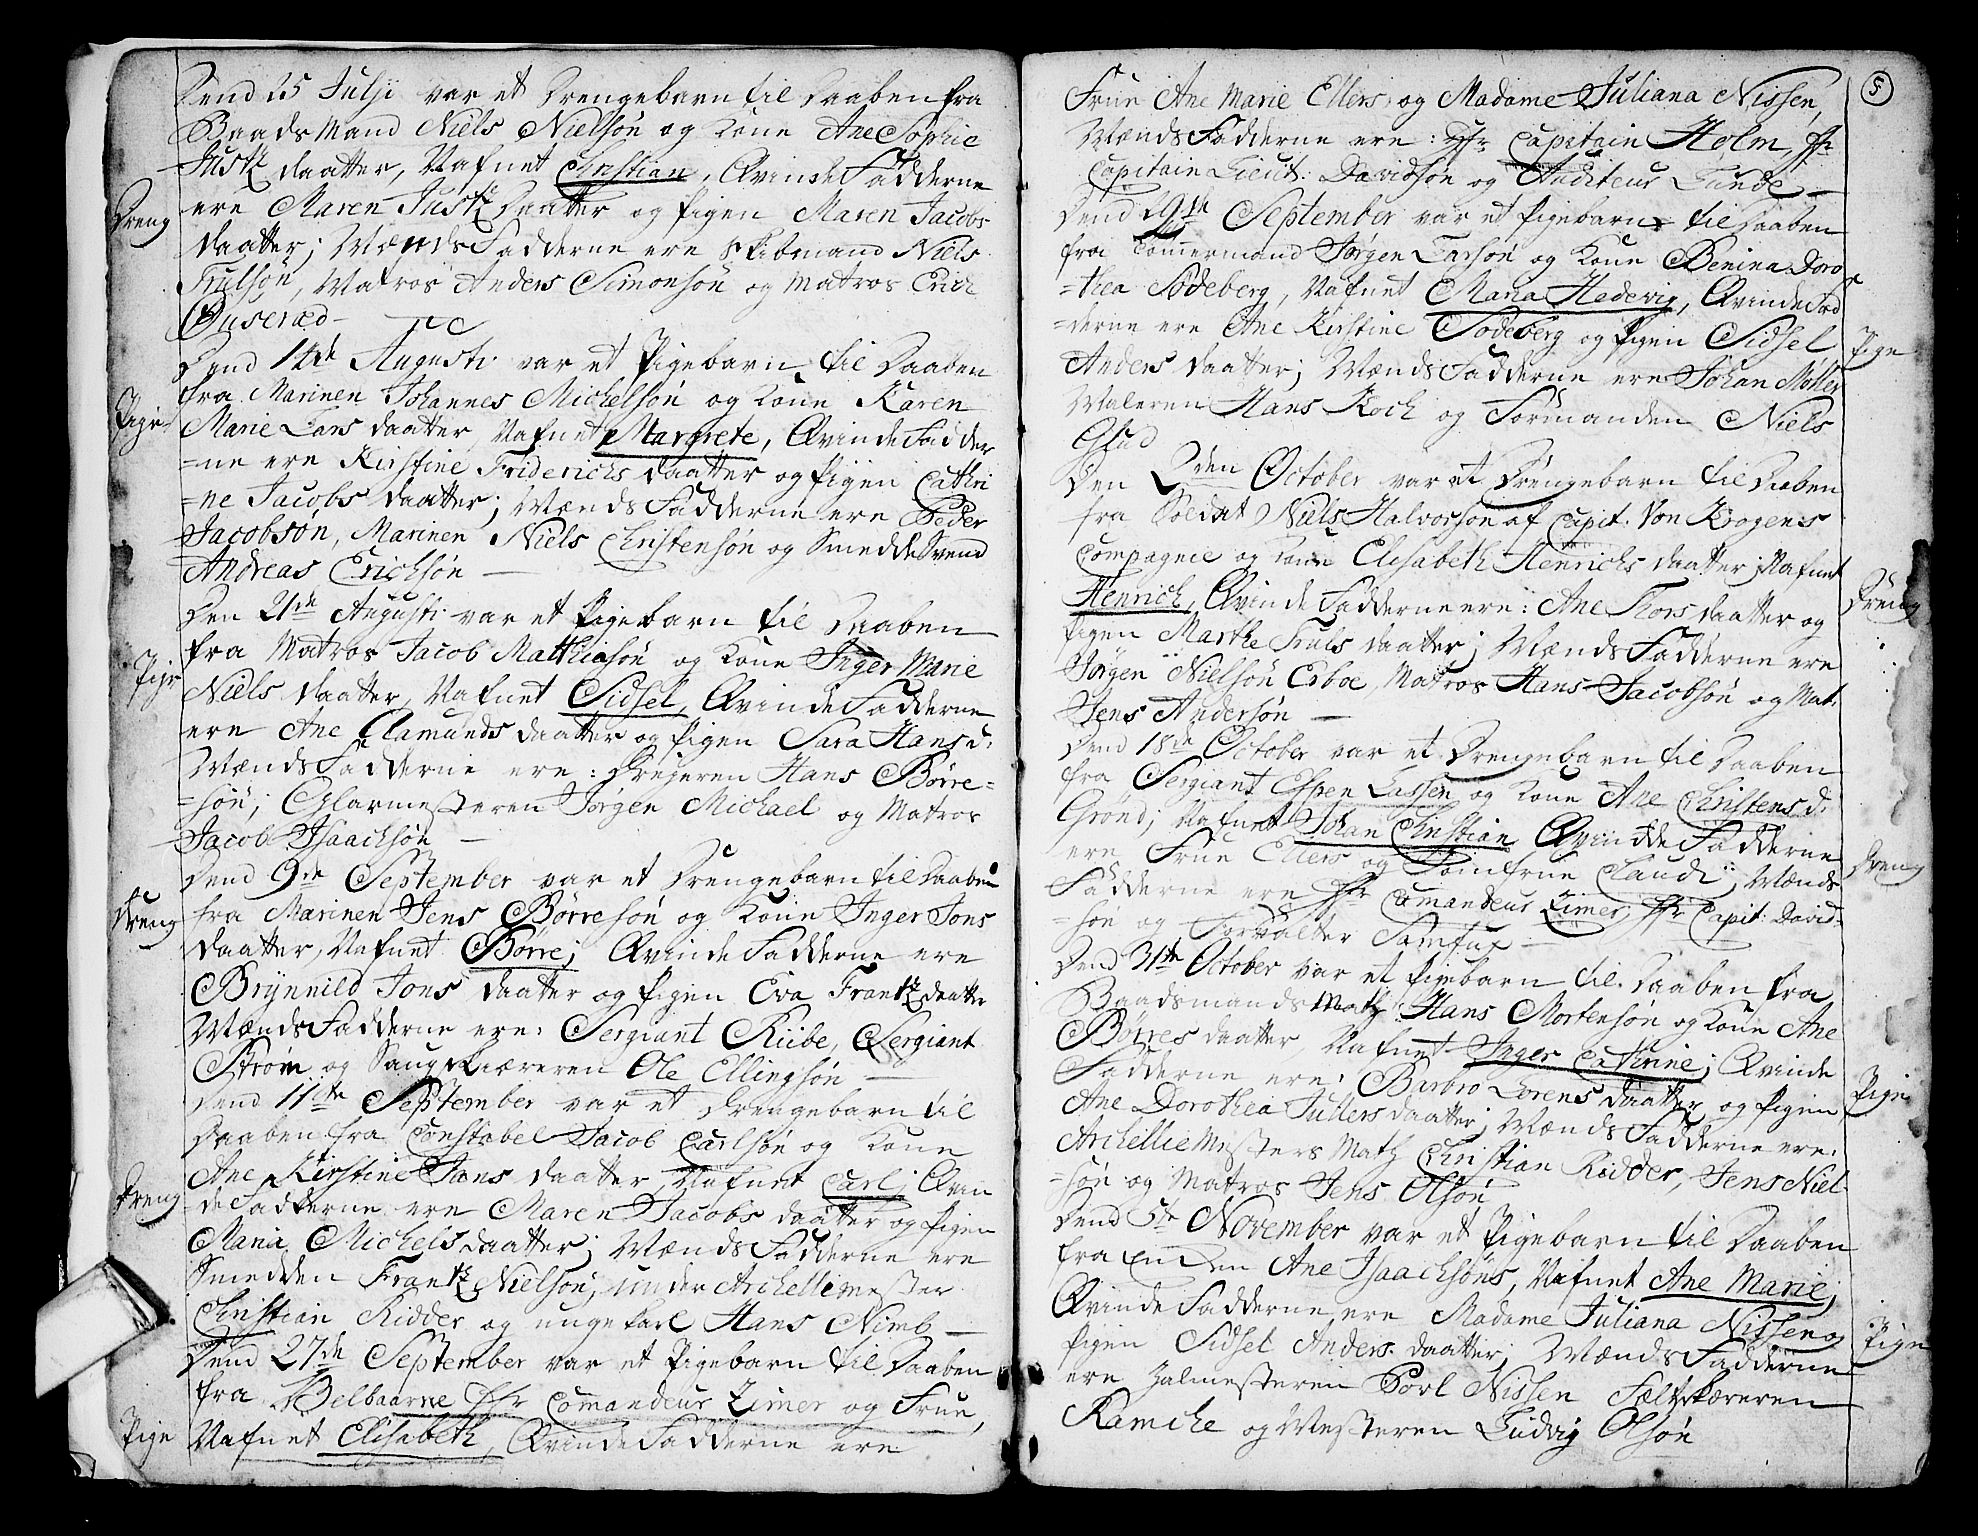 Dend 25 Julji var et Drengebarn til Daaben fra
Baads Mand Niels Nielsøn og Kone Ane Sophie
Justz daatter, Nafnet Christian, Qvinde Fadderne
Dreng
ere Maren Justz Daatter og Pigen Maren Jacobs
daatter; Mænds Fadderne ere Skibmand Niels
Trulsøn, Matros Anders Simonsøn og Matros Erich
Buserød
Dend 14de Augusti var et Pigebarn til Daaben
Pige
fra Marinen Johannes Michelsøn og Kone Karen
Marie Lars daatter, Nafnet Margrete, Qvinde Fadder
=ne ere Kirstine Friderichs daatter og Pigen Cathri
=ne Jacobs daatter; Mænds Fadderne ere Peder
Jacobsøn, Marinen Niels Christensøn og Smedde Svend
Andreas Erichsøn
Den 21de Augusti var et Pigebarn til Daaben
Pige
fra Matros Jacob Matthiasøn og Kone Inger Marie
Niels daatter, Nafnet Sidsel, Qvinde Fadderne
ere Ane Aamunds daatter og Pigen Sara Hans d:
Mænds Fadderne ere: Drejeren Hans Børre=
=søn; Glarmesteren Jørgen Michael og Matros
Jacob Isaachsøn
Dend 9de September var et Drengebarn til Daaben
Dreng
fra Marinen Jens Børresøn og Kone Inger Jons
daatter, Nafnet Børre; Qvinde Fadderne ere
Brynnild Jons daatter og Pigen Eva Frantz daatter
Mænds Fadderne ere: Sergiant Riibe, Sergiant
Strøm og Saugskiæreren Ole Ellingsøn
Dend 11te September var et Drengebarn til
Daaben fra Constabel Jacob Carlsøn og Kone
Ane Kirstine Jans daatter, Nafnet Carl; Qvin
Dreng
=de Fadderne ere Maren Jacobs daatter og Pigen
Maria Michels daatter; Mænds Fadderne ere
Smedden Frantz Nielsøn, under Archellimester
Christian Ridder og unge Karl Hans Nimb
Dend 27de September var et Pigebarn til Daaben
fra Velbaarne Hr Comandeur Zimer og Frue,
Pige
Nafnet Elisabeth, Qvinde Fadderne ere
5
Frue Ane Marie Ellers, og Madame Juliana Nissen,
Mænds Fadderne ere: Hr Capitain Holm, Hr
Capitain Lieut: Davidsøn og Auditeur Lunde
Dend 29th September var et Pigebarn til Daaben
fra Tømmermand Jørgen Larsøn og Kone Benina Doro
=thea Sødeberg, Nafnet Maria Hedevig, Qvinde Fad
=derne ere Ane Kirstine Sødeberg og Pigen Sidsel
Pige
Anders daatter; Mænds Fadderne ere Johan Møller
Maleren Hans Koch og Formanden Niels
Glud
Den 2den October var et Drengebarn til Daaben
fra Soldat Niels Halvorsøn af Capit: Von Krogens
Compagnie og Kone Elisabeth Henrichs daatter; Nafnet
Dreng
Henrich, Qvinde Fadderne ere: Ane Thors daatter og
Pigen Marthe Truls daatter; Mænds Fadderne ere
Jørgen Nielsøn Erboe, Matros Hans Jacobsøn og Mat:
Jens Andersøn
Dend 18de October var et Drengebarn til Daaben
fra Sergiant Espen Lassen og Kone Ane Christens d:
Grønd; Nafnet Johan Christian, Qvindde Fadderne
Dreng
ere Frue Ellers og Jomfrue Claudi; Mænds
Fadderne ere Hr Comandeur Zimer, Hr Capit: David=
=søn og Forvalter Samfux
Dend 31te October var et Pigebarn til Daaben fra
Baadsmands Math: Hans Mortensøn og Kone Ane
Børres daatter, Nafnet Inger Cathrine; Qvinde
Pige
Fadderne ere: Barbro Lorens daatter og Pigen
Ane Dorothea Jullers daatter; Mænds Fadderne ere:
Archellie Mesters Math Christian Ridder, Jens Niel=
=søn og Matros Jens Olsøn
Dend 5te November var et Pigebarn til Daaben
fra Enden Ane Isaachsøns, Nafnet Ane Marie;
Qvinde Fadderne ere Madame Juliana Nissen og
Pige
Pigen Sidsel Anders daatter; Mænds Fadderne
ere Halmesteren Povl Nissen Feltskæreren
Ramcke og Mesteren Ludvig Olsøn